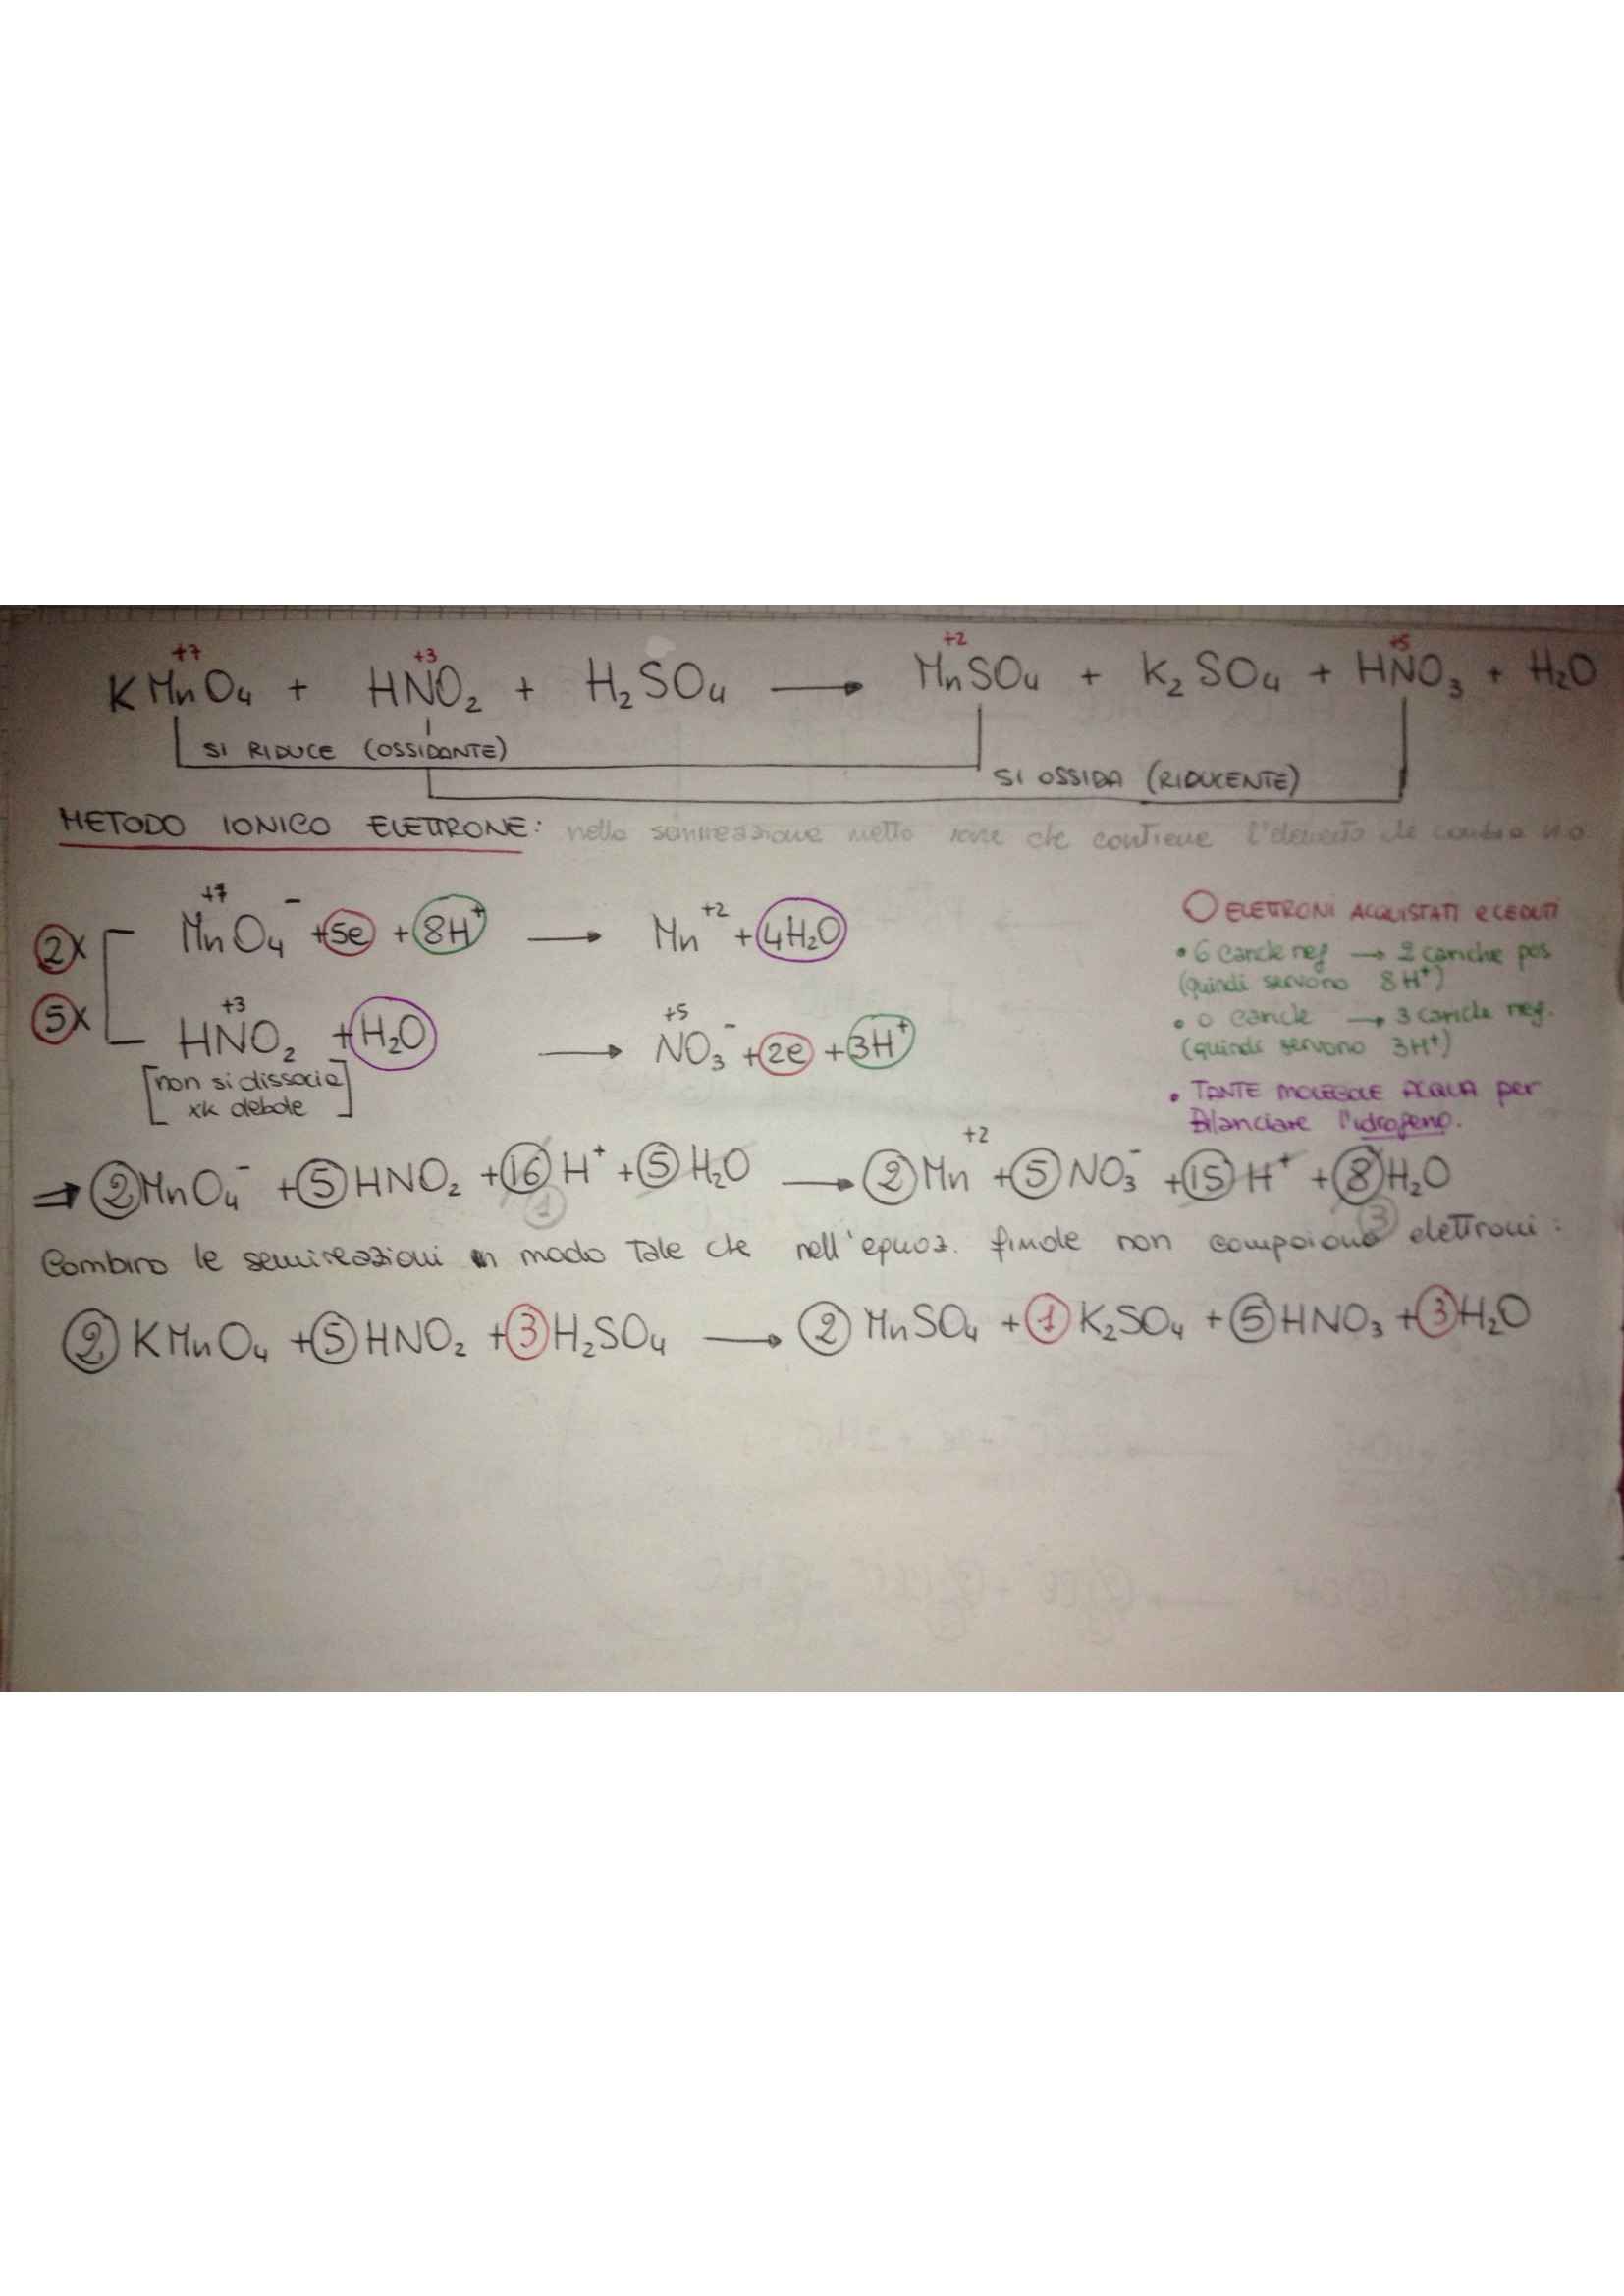 +7 +3 +2 +5
KMnO₄ + HNO₂ + H₂SO₄ → MnSO₄ + K₂SO₄ + HNO₃ + H₂O
SI RIDUCE (OSSIDANTE)
SI OSSIDA (RIDUCENTE)
METODO IONICO ELETTRONE: nella semireazione metto ione che contiene l'elemento che cambia n.o
+7
2x MnO₄⁻ +5e + 8H⁺ → Mn⁺² + 4H₂O
+3 +5
5x HNO₂ + H₂O → NO₃⁻ + 2e + 3H⁺
[non si dissocia
xk debole]
O ELETTRONI ACQUISTATI e CEDUTI
• 6 cariche neg → 2 cariche pos
(quindi servono 8H⁺)
• 0 cariche → 3 cariche neg.
(quindi servono 3H⁺)
• TANTE MOLECOLE ACQUA per
Bilanciare l'idrogeno.
⇒ 2MnO₄⁻ + 5HNO₂ + 16H⁺ + 5H₂O → 2Mn⁺² + 5NO₃⁻ + 15H⁺ + 8H₂O
1 3
Combino le semireazioni in modo Tale che nell'equaz. finale non compaiono elettroni:
2 KMnO₄ + 5 HNO₂ + 3 H₂SO₄ → 2 MnSO₄ + 1 K₂SO₄ + 5 HNO₃ + 3 H₂O